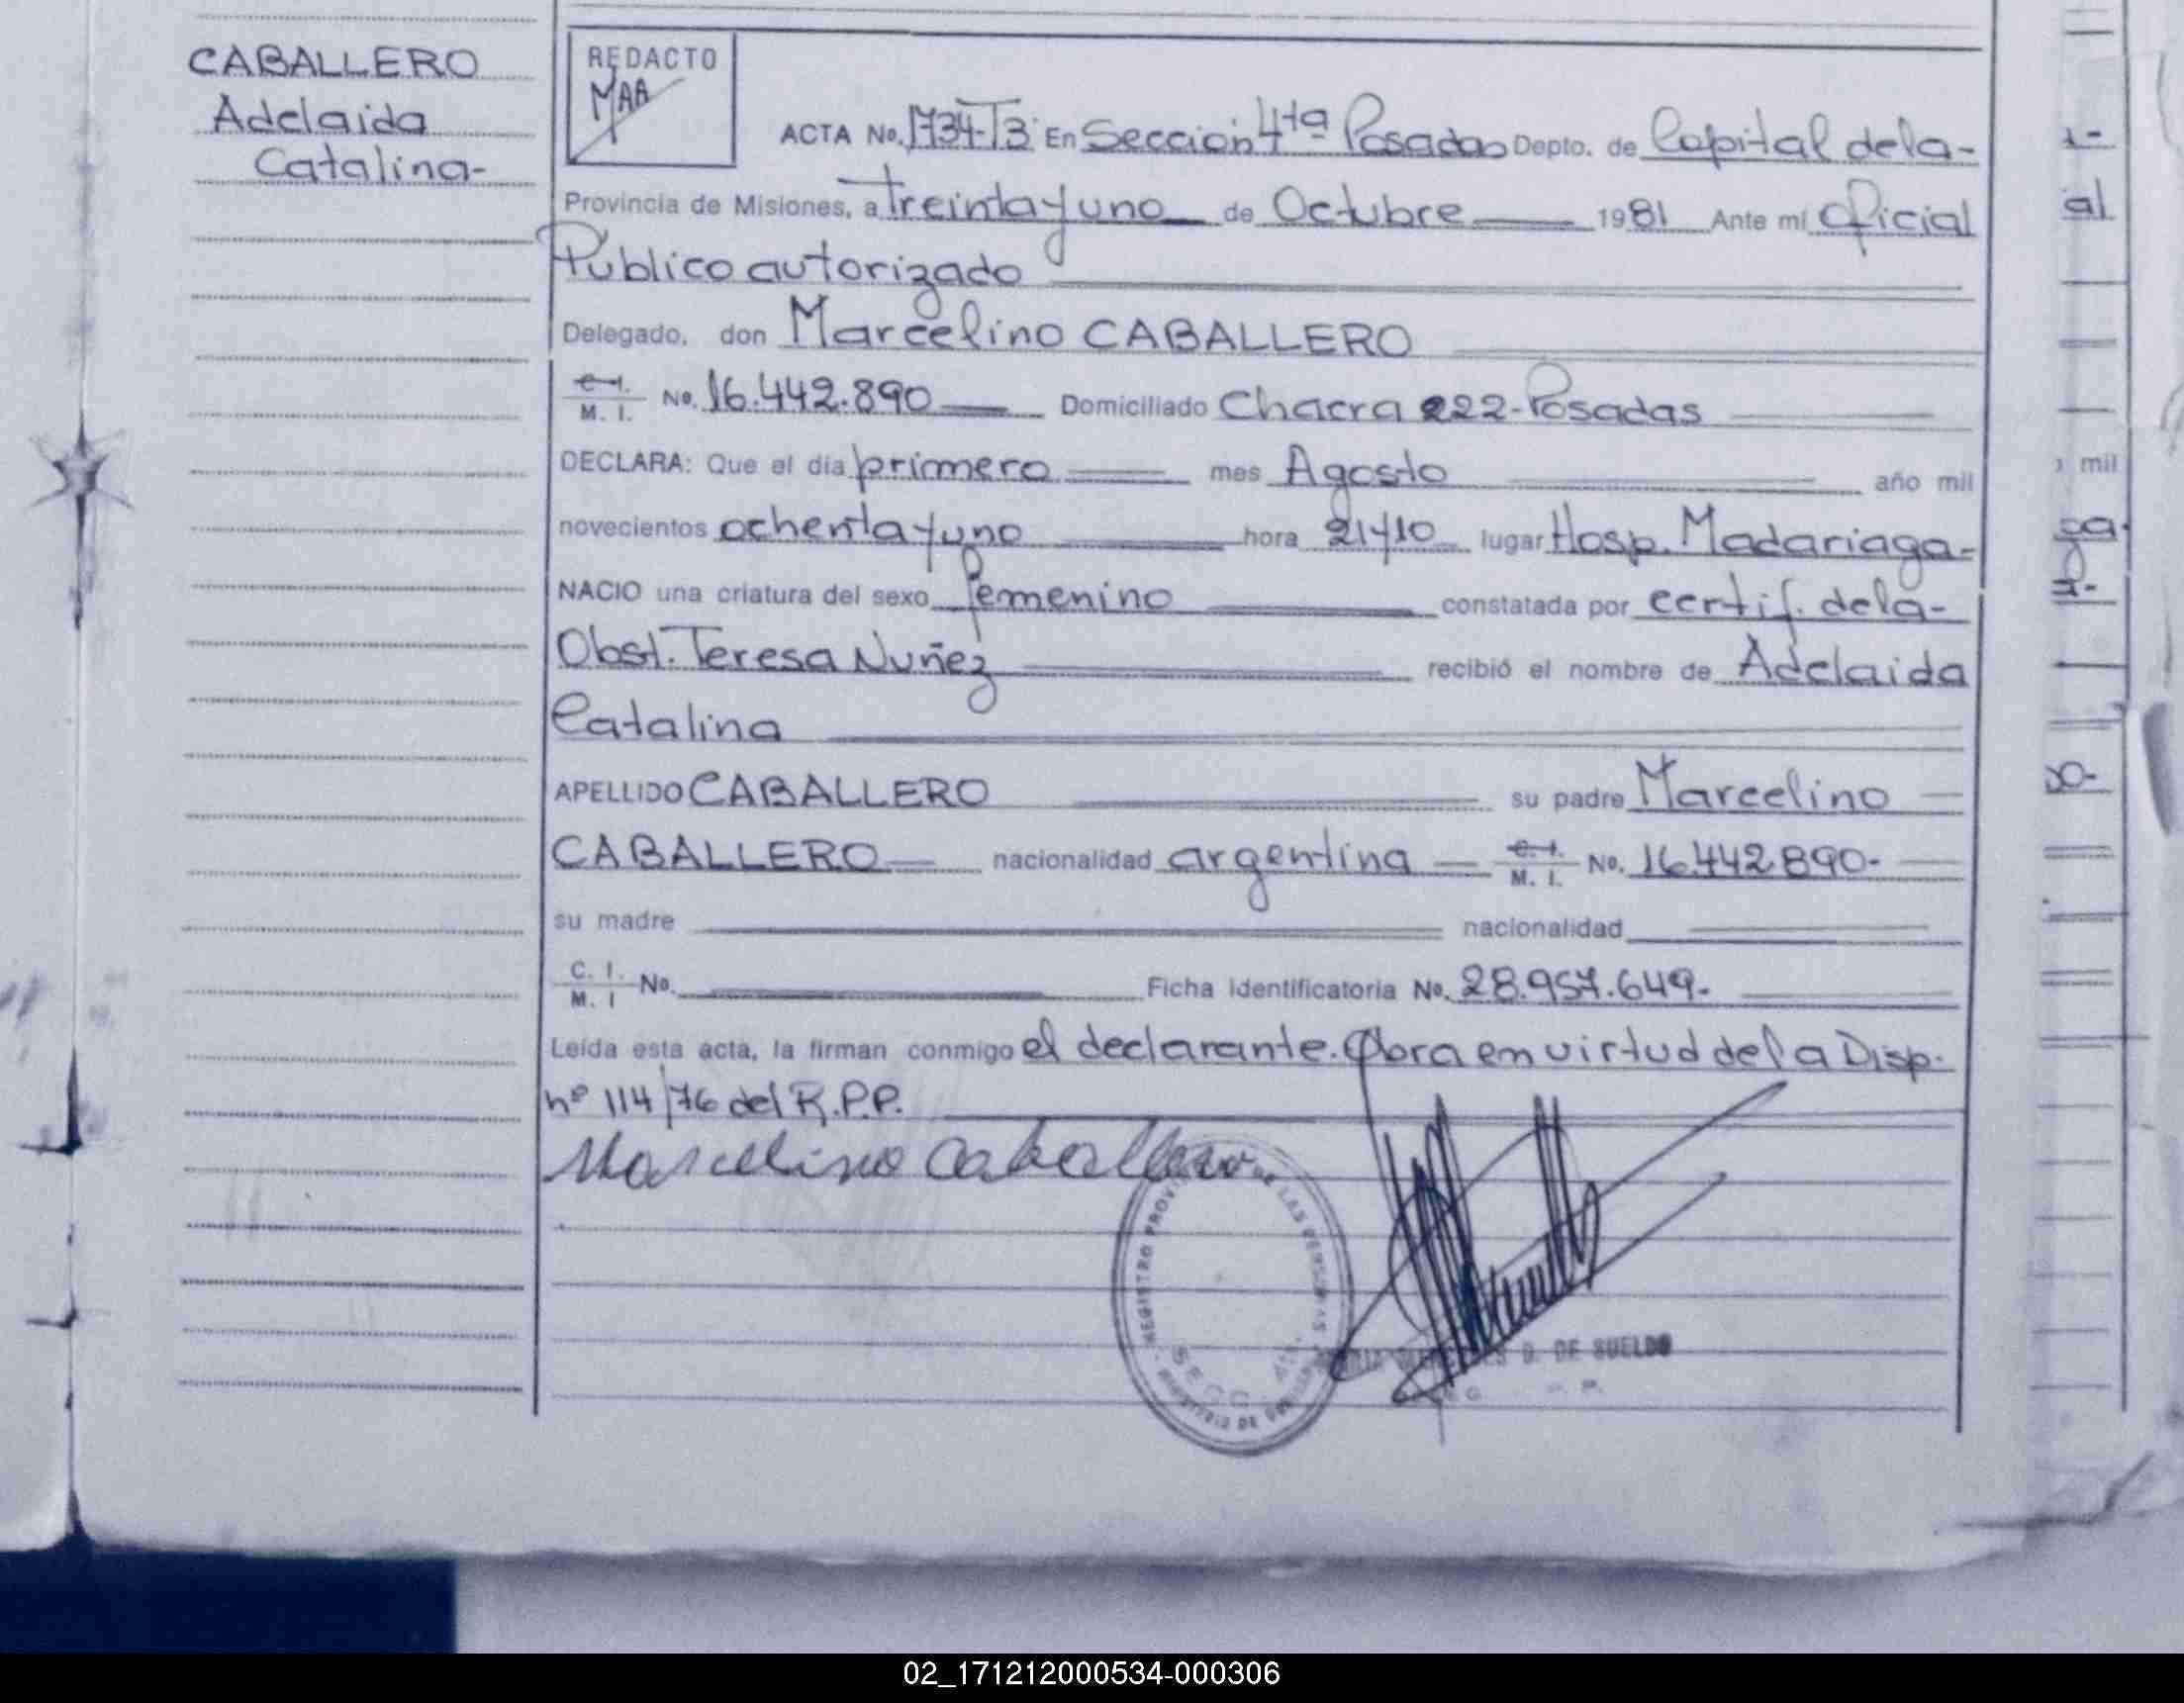 CABALLERO
Adelaida
Catalina-
REDACTO
MAA
ACTA No. 1734-T3 En Sección 4ta Posadas Depto. de Capital de la-
Provincia de Misiones, a treinta y uno de Octubre 1981 Ante mí Oficial
Público autorizado
Delegado, don Marcelino CABALLERO
C. I. / M. I. No. 16.442.890 Domiciliado Chacra 222-Posadas
DECLARA: Que el día primero mes Agosto año mil
novecientos ochenta y uno hora 21y10 lugar Hosp. Madariaga-
NACIO una criatura del sexo femenino constatada por certif. de la-
Obst. Teresa Nuñez recibió el nombre de Adelaida
Catalina
APELLIDO CABALLERO su padre Marcelino
CABALLERO nacionalidad argentina C. I. / M. I. No. 16.442.890-
su madre nacionalidad
C. I. / M. I No. Ficha identificatoria No. 28.957.649-
Leída esta acta, la firman conmigo el declarante. Obra en virtud de la Disp.
nº 114/76 del R.P.P.
Marcelino Caballero
REGISTRO DE LAS PERSONAS
DE SUELDO
al
o mil
02_171212000534-000306